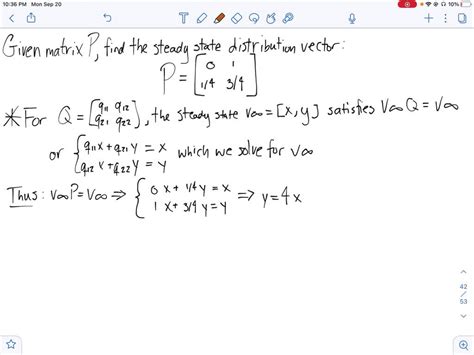 10:36 PM Mon Sep 20
10%
Given matrix P, find the steady state distribution vector:
P = [0 1
1/4 3/4]
*For Q = [q11 q12
q21 q22], the steady state v∞ = [x, y] satisfies v∞Q = v∞
or { q11x + q21y = x
q12x + q22y = y which we solve for v∞
Thus: v∞P = v∞ ⇒ { 0x + 1/4y = x
1x + 3/4y = y ⇒ y = 4x
42
/
53